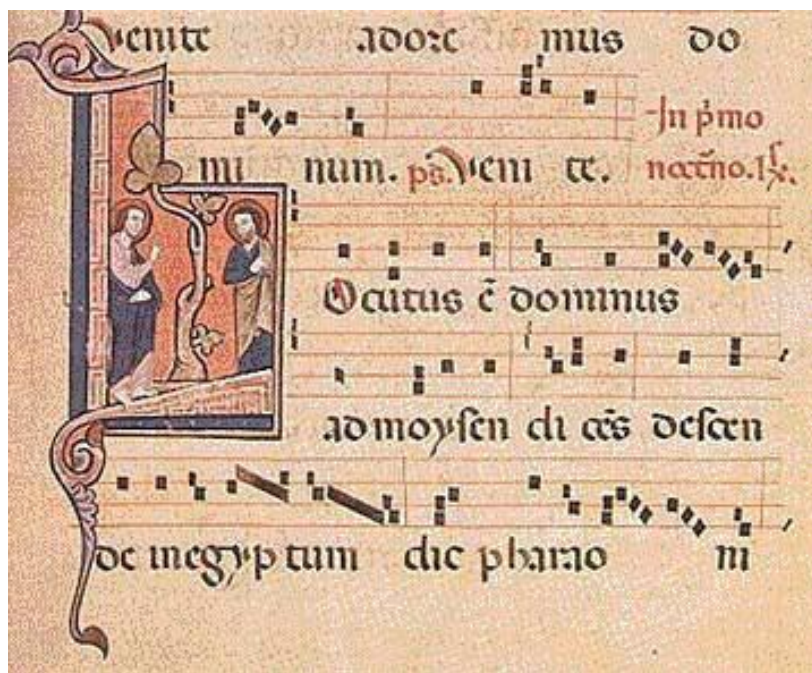 Venite adore mus do
mi num. ps. Veni te. In p̄mo
noct̄no. R̸.
Ocutus ē dominus
ad moysen di cēs descen
de in egyp tum dic pharao ni